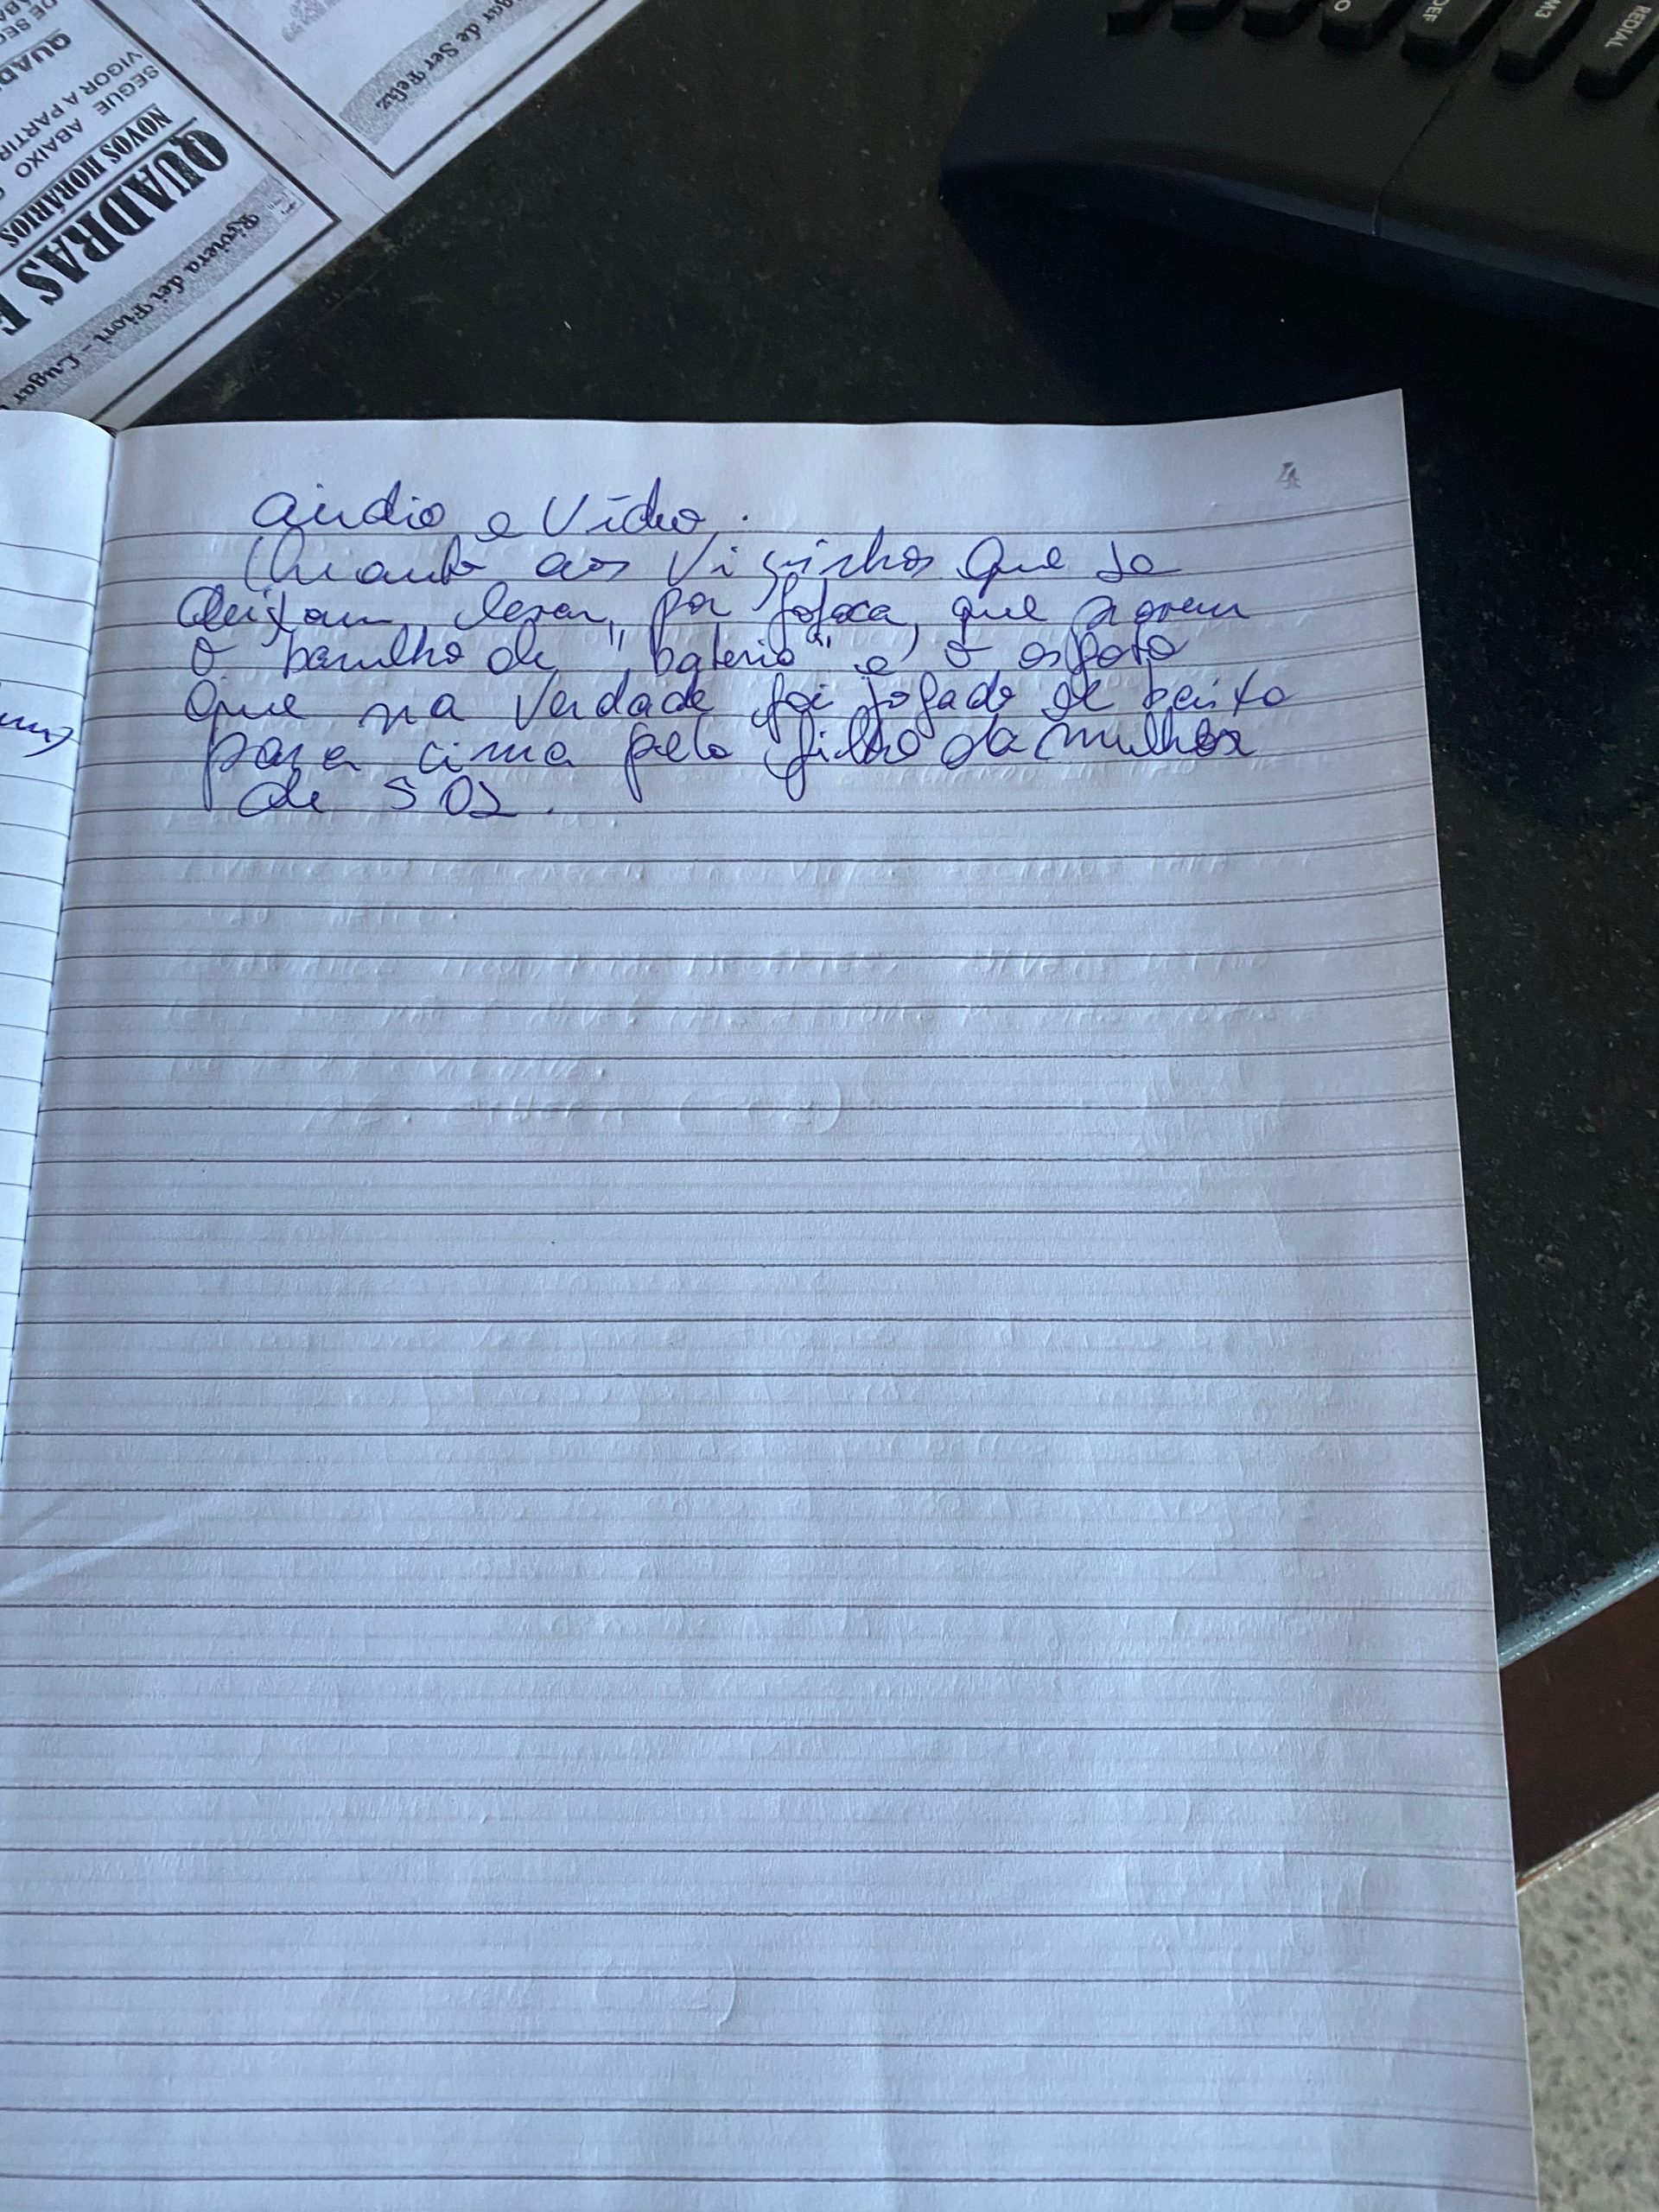 REDIAL
M3
DEF
O
gar de Ser Feliz
Riviera dei Fiori - Lugar
QUADRAS E
NOVOS HORÁRIOS
SEGUE ABAIXO
VIGOR A PARTIR
QUAD
DE SEG
4
áudio e vídeo.
Quanto aos vizinhos que se
deixam levar, por fofoca, que
o barulho de "bateria" e o
que na verdade foi jogado de baixo
para cima pelo filho da mulher
de 502.